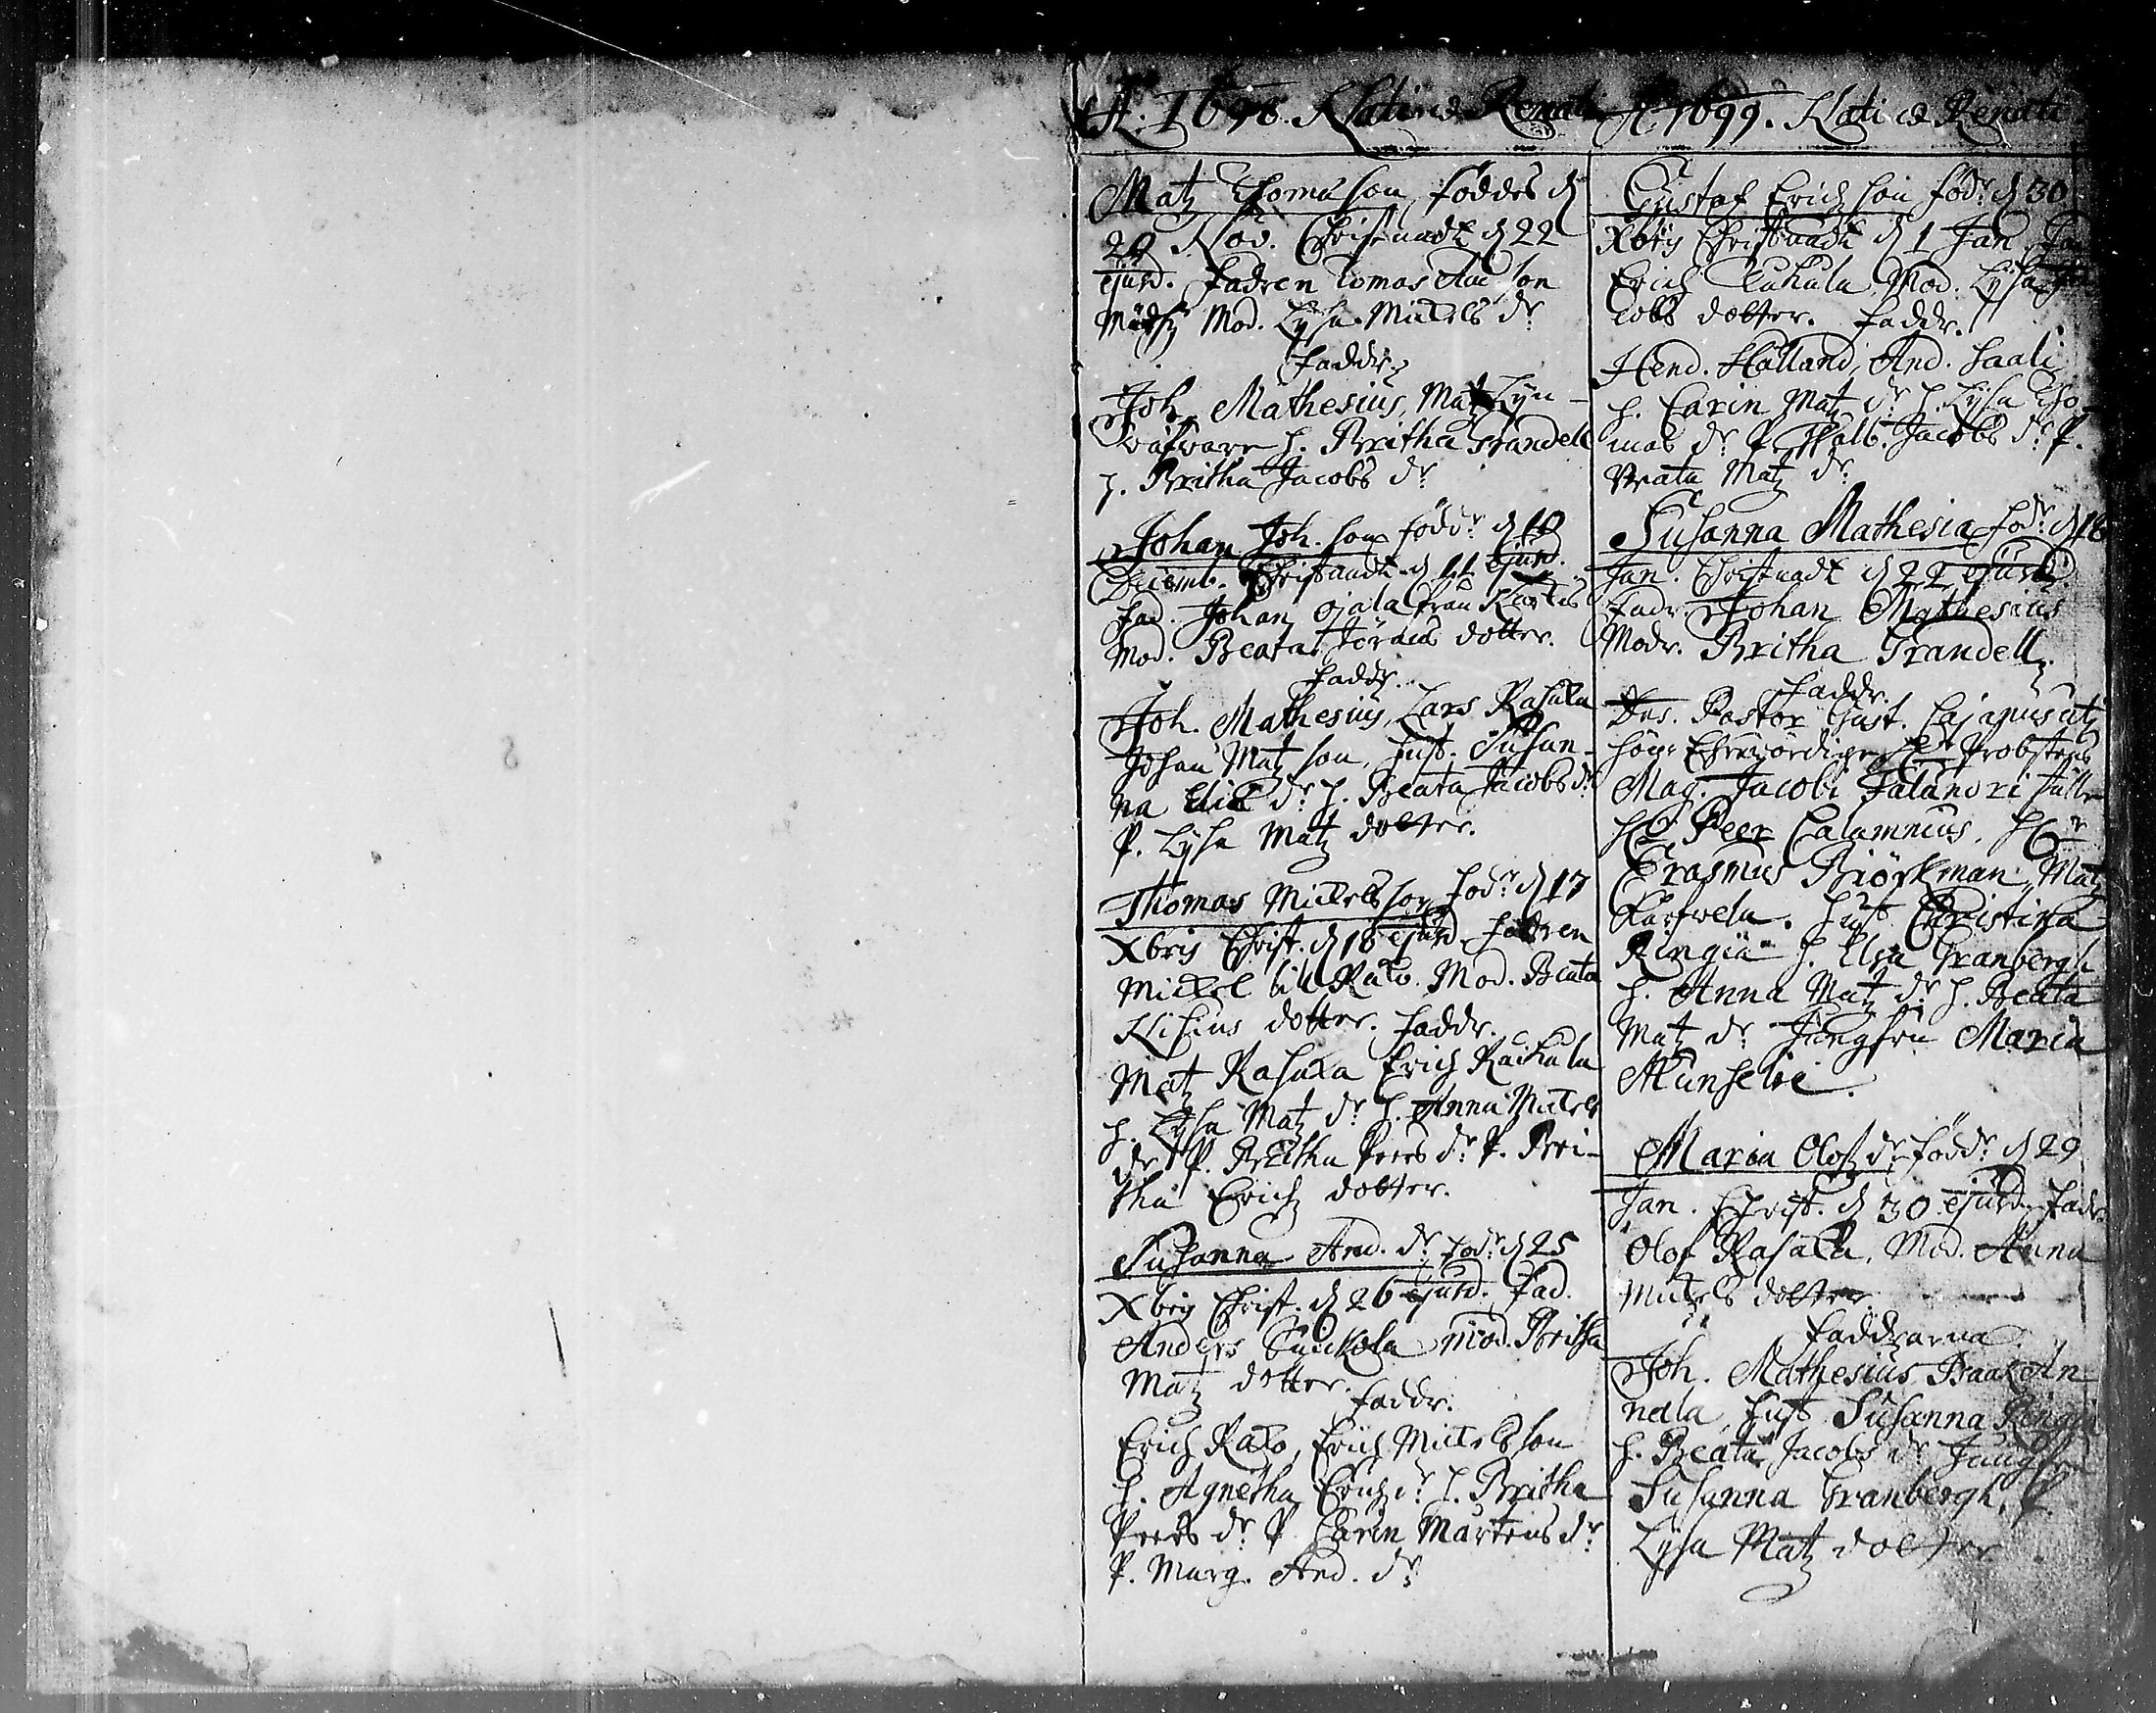 A. 1698. Nati et Renati
Matz Thomsson föddes d
20 Nov. Christnadt d 22
ejusd. Fadren Tomas
Mod. Lysa Mickels dr
Faddr.
Joh. Mathesius, Matz Lyn-
h. Britha Grandell
h. Britha Jacobs dr
Johan Joh. son föddr d 10
Decemb. Christnadt d 11 ejusd.
Fad. Johan Ojala från
Mod. Beata Jörans dotter.
Faddr.
Joh. Mathesius, Lars Rasala
Johan Matz son, hust. Susan-
na dr h. Beata Jacobs dr
P. Lysa Matz dotter.
Thomas Mickelsson Födr d 17
Xbris Christ. d 18 ejusd. Fadren
Mickel Rato. Mod. Beata
dotter. Faddr.
Matz Rasala Erich
h. Lysa Matz dr h. Anna Mickels
dr P. Britha Peers dr P. Bri-
tha Erichz dotter.
Susanna And. dr Födr d 25
Xbris Christ. d 26 ejusd. Fad.
Anders mod. Britha
Matz dotter.
Faddr.
Erich Rato, Erich Mickelsson
h. Agnetha Erichz dr h. Britha
Peers dr P. Carin Mårtens dr
P. Marg. And. dr
A. 1699. Nati et Renati
Gustaf Erichsson födr d 30
Xbris Christnadt d 1 Jan. Fad
Erich Mod. Lysa Ja-
cobs dotter. Faddr.
Hend. Hålland, And. Saali
h. Carin Matz dr h. Lysa Tho-
mas dr P. Walb. Jacobs dr P.
Beata Matz dr
Susanna Mathesia födr d 16
Jan. Christnadt d 22 ejusd.
Fadr. Johan Mathesius
Modr. Britha Grandell.
Faddr.
Dns. Pastor Gust. Cajanus uti
högl Ehrewördige Hr Probstens
Mag. Jacobi Falandri ställe
Hr Peer Calamnius, Hr
Erasmus Biörkman, Matz
hust. Christina
Ringia h. Elsa Granbergh
h. Anna Matz dr h. Beata
Matz dr Jungfru Maria
Munselie.
Maria Olofz dr födr d 29
Jan. Christ. d 30 ejusd. Fadr.
Olof Rasala, Mod. Anna
Mickels dotter
Faddrarna
Joh. Mathesius, Isaak An-
nala, hust Susanna Ringia
h. Beata Jacobs dr Jungfru
Susanna Granbergh, P.
Lysa Matz dotter